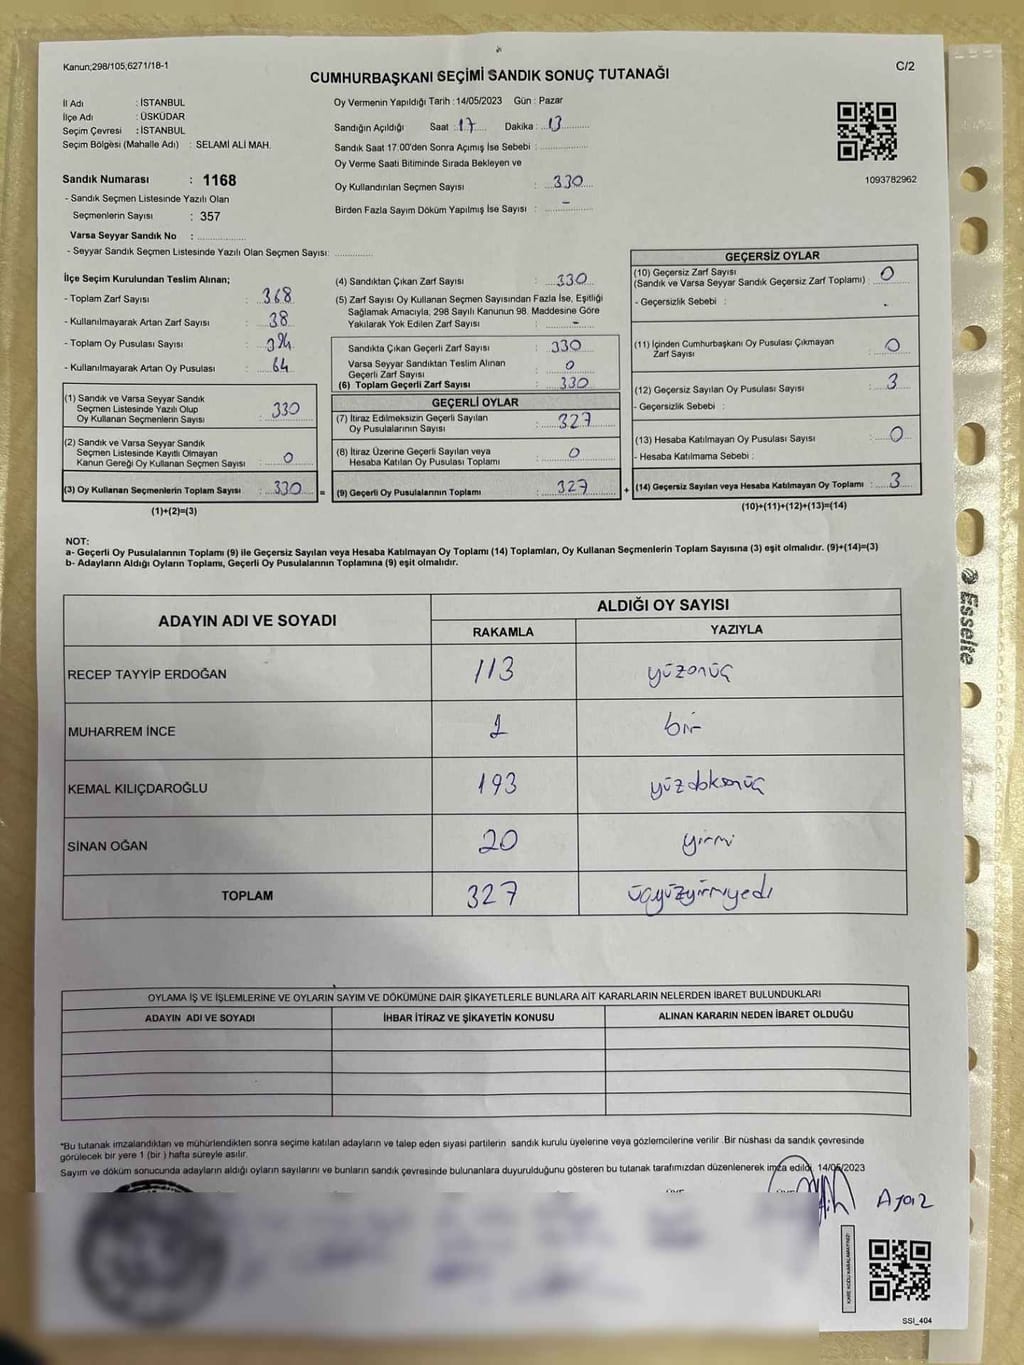 Kanun;298/105,6271/18-1
C/2
CUMHURBAŞKANI SEÇİMİ SANDIK SONUÇ TUTANAĞI
İl Adı : İSTANBUL
İlçe Adı : ÜSKÜDAR
Seçim Çevresi : İSTANBUL
Seçim Bölgesi (Mahalle Adı) : SELAMİ ALİ MAH.
Sandık Numarası : 1168
- Sandık Seçmen Listesinde Yazılı Olan
Seçmenlerin Sayısı : 357
Varsa Seyyar Sandık No :
- Seyyar Sandık Seçmen Listesinde Yazılı Olan Seçmen Sayısı:
Oy Vermenin Yapıldığı Tarih : 14/05/2023 Gün : Pazar
Sandığın Açıldığı Saat : 17 Dakika : 13
Sandık Saat 17.00'den Sonra Açımış İse Sebebi :
Oy Verme Saati Bitiminde Sırada Bekleyen ve
Oy Kullandırılan Seçmen Sayısı : 330
Birden Fazla Sayım Döküm Yapılmış İse Sayısı : -
1093782962
İlçe Seçim Kurulundan Teslim Alınan;
- Toplam Zarf Sayısı : 368
- Kullanılmayarak Artan Zarf Sayısı : 38
- Toplam Oy Pusulası Sayısı :
- Kullanılmayarak Artan Oy Pusulası : 64
(1) Sandık ve Varsa Seyyar Sandık
Seçmen Listesinde Yazılı Olup
Oy Kullanan Seçmenlerin Sayısı : 330
(2) Sandık ve Varsa Seyyar Sandık
Seçmen Listesinde Kayıtlı Olmayan
Kanun Gereği Oy Kullanan Seçmen Sayısı : 0
(3) Oy Kullanan Seçmenlerin Toplam Sayısı : 330 =
(1)+(2)=(3)
(4) Sandıktan Çıkan Zarf Sayısı : 330
(5) Zarf Sayısı Oy Kullanan Seçmen Sayısından Fazla İse, Eşitliği
Sağlamak Amacıyla, 298 Sayılı Kanunun 98. Maddesine Göre
Yakılarak Yok Edilen Zarf Sayısı : -
Sandıkta Çıkan Geçerli Zarf Sayısı : 330
Varsa Seyyar Sandıktan Teslim Alınan
Geçerli Zarf Sayısı : 0
(6) Toplam Geçerli Zarf Sayısı : 330
GEÇERLİ OYLAR
(7) İtiraz Edilmeksizin Geçerli Sayılan
Oy Pusulalarının Sayısı : 327
(8) İtiraz Üzerine Geçerli Sayılan veya
Hesaba Katılan Oy Pusulası Toplamı : 0
(9) Geçerli Oy Pusulalarının Toplamı : 327 +
GEÇERSİZ OYLAR
(10) Geçersiz Zarf Sayısı
(Sandık ve Varsa Seyyar Sandık Geçersiz Zarf Toplamı) : 0
- Geçersizlik Sebebi :
(11) İçinden Cumhurbaşkanı Oy Pusulası Çıkmayan
Zarf Sayısı : 0
(12) Geçersiz Sayılan Oy Pusulası Sayısı : 3
- Geçersizlik Sebebi :
(13) Hesaba Katılmayan Oy Pusulası Sayısı : 0
- Hesaba Katılmama Sebebi :
(14) Geçersiz Sayılan veya Hesaba Katılmayan Oy Toplamı : 3
(10)+(11)+(12)+(13)=(14)
NOT:
a- Geçerli Oy Pusulalarının Toplamı (9) ile Geçersiz Sayılan veya Hesaba Katılmayan Oy Toplamı (14) Toplamları, Oy Kullanan Seçmenlerin Toplam Sayısına (3) eşit olmalıdır. (9)+(14)=(3)
b- Adayların Aldığı Oyların Toplamı, Geçerli Oy Pusulalarının Toplamına (9) eşit olmalıdır.
ADAYIN ADI VE SOYADI
ALDIĞI OY SAYISI
RAKAMLA YAZIYLA
RECEP TAYYİP ERDOĞAN 113 yüzonüç
MUHARREM İNCE 1 bir
KEMAL KILIÇDAROĞLU 193 yüzdoksanüç
SİNAN OĞAN 20 yirmi
TOPLAM 327 üçyüzyirmiyedi
OYLAMA İŞ VE İŞLEMLERİNE VE OYLARIN SAYIM VE DÖKÜMÜNE DAİR ŞİKAYETLERLE BUNLARA AİT KARARLARIN NELERDEN İBARET BULUNDUKLARI
ADAYIN ADI VE SOYADI İHBAR İTİRAZ VE ŞİKAYETİN KONUSU ALINAN KARARIN NEDEN İBARET OLDUĞU
*Bu tutanak imzalandıktan ve mühürlendikten sonra seçime katılan adayların ve talep eden siyasi partilerin sandık kurulu üyelerine veya gözlemcilerine verilir .Bir nüshası da sandık çevresinde
görülecek bir yere 1 (bir ) hafta süreyle asılır.
Sayım ve döküm sonucunda adayların aldığı oyların sayılarını ve bunların sandık çevresinde bulunanlara duyurulduğunu gösteren bu tutanak tarafımızdan düzenlenerek imza edildi. 14/05/2023
KARE KODU KARALAMAYINIZ!
SSI_404
Esselte